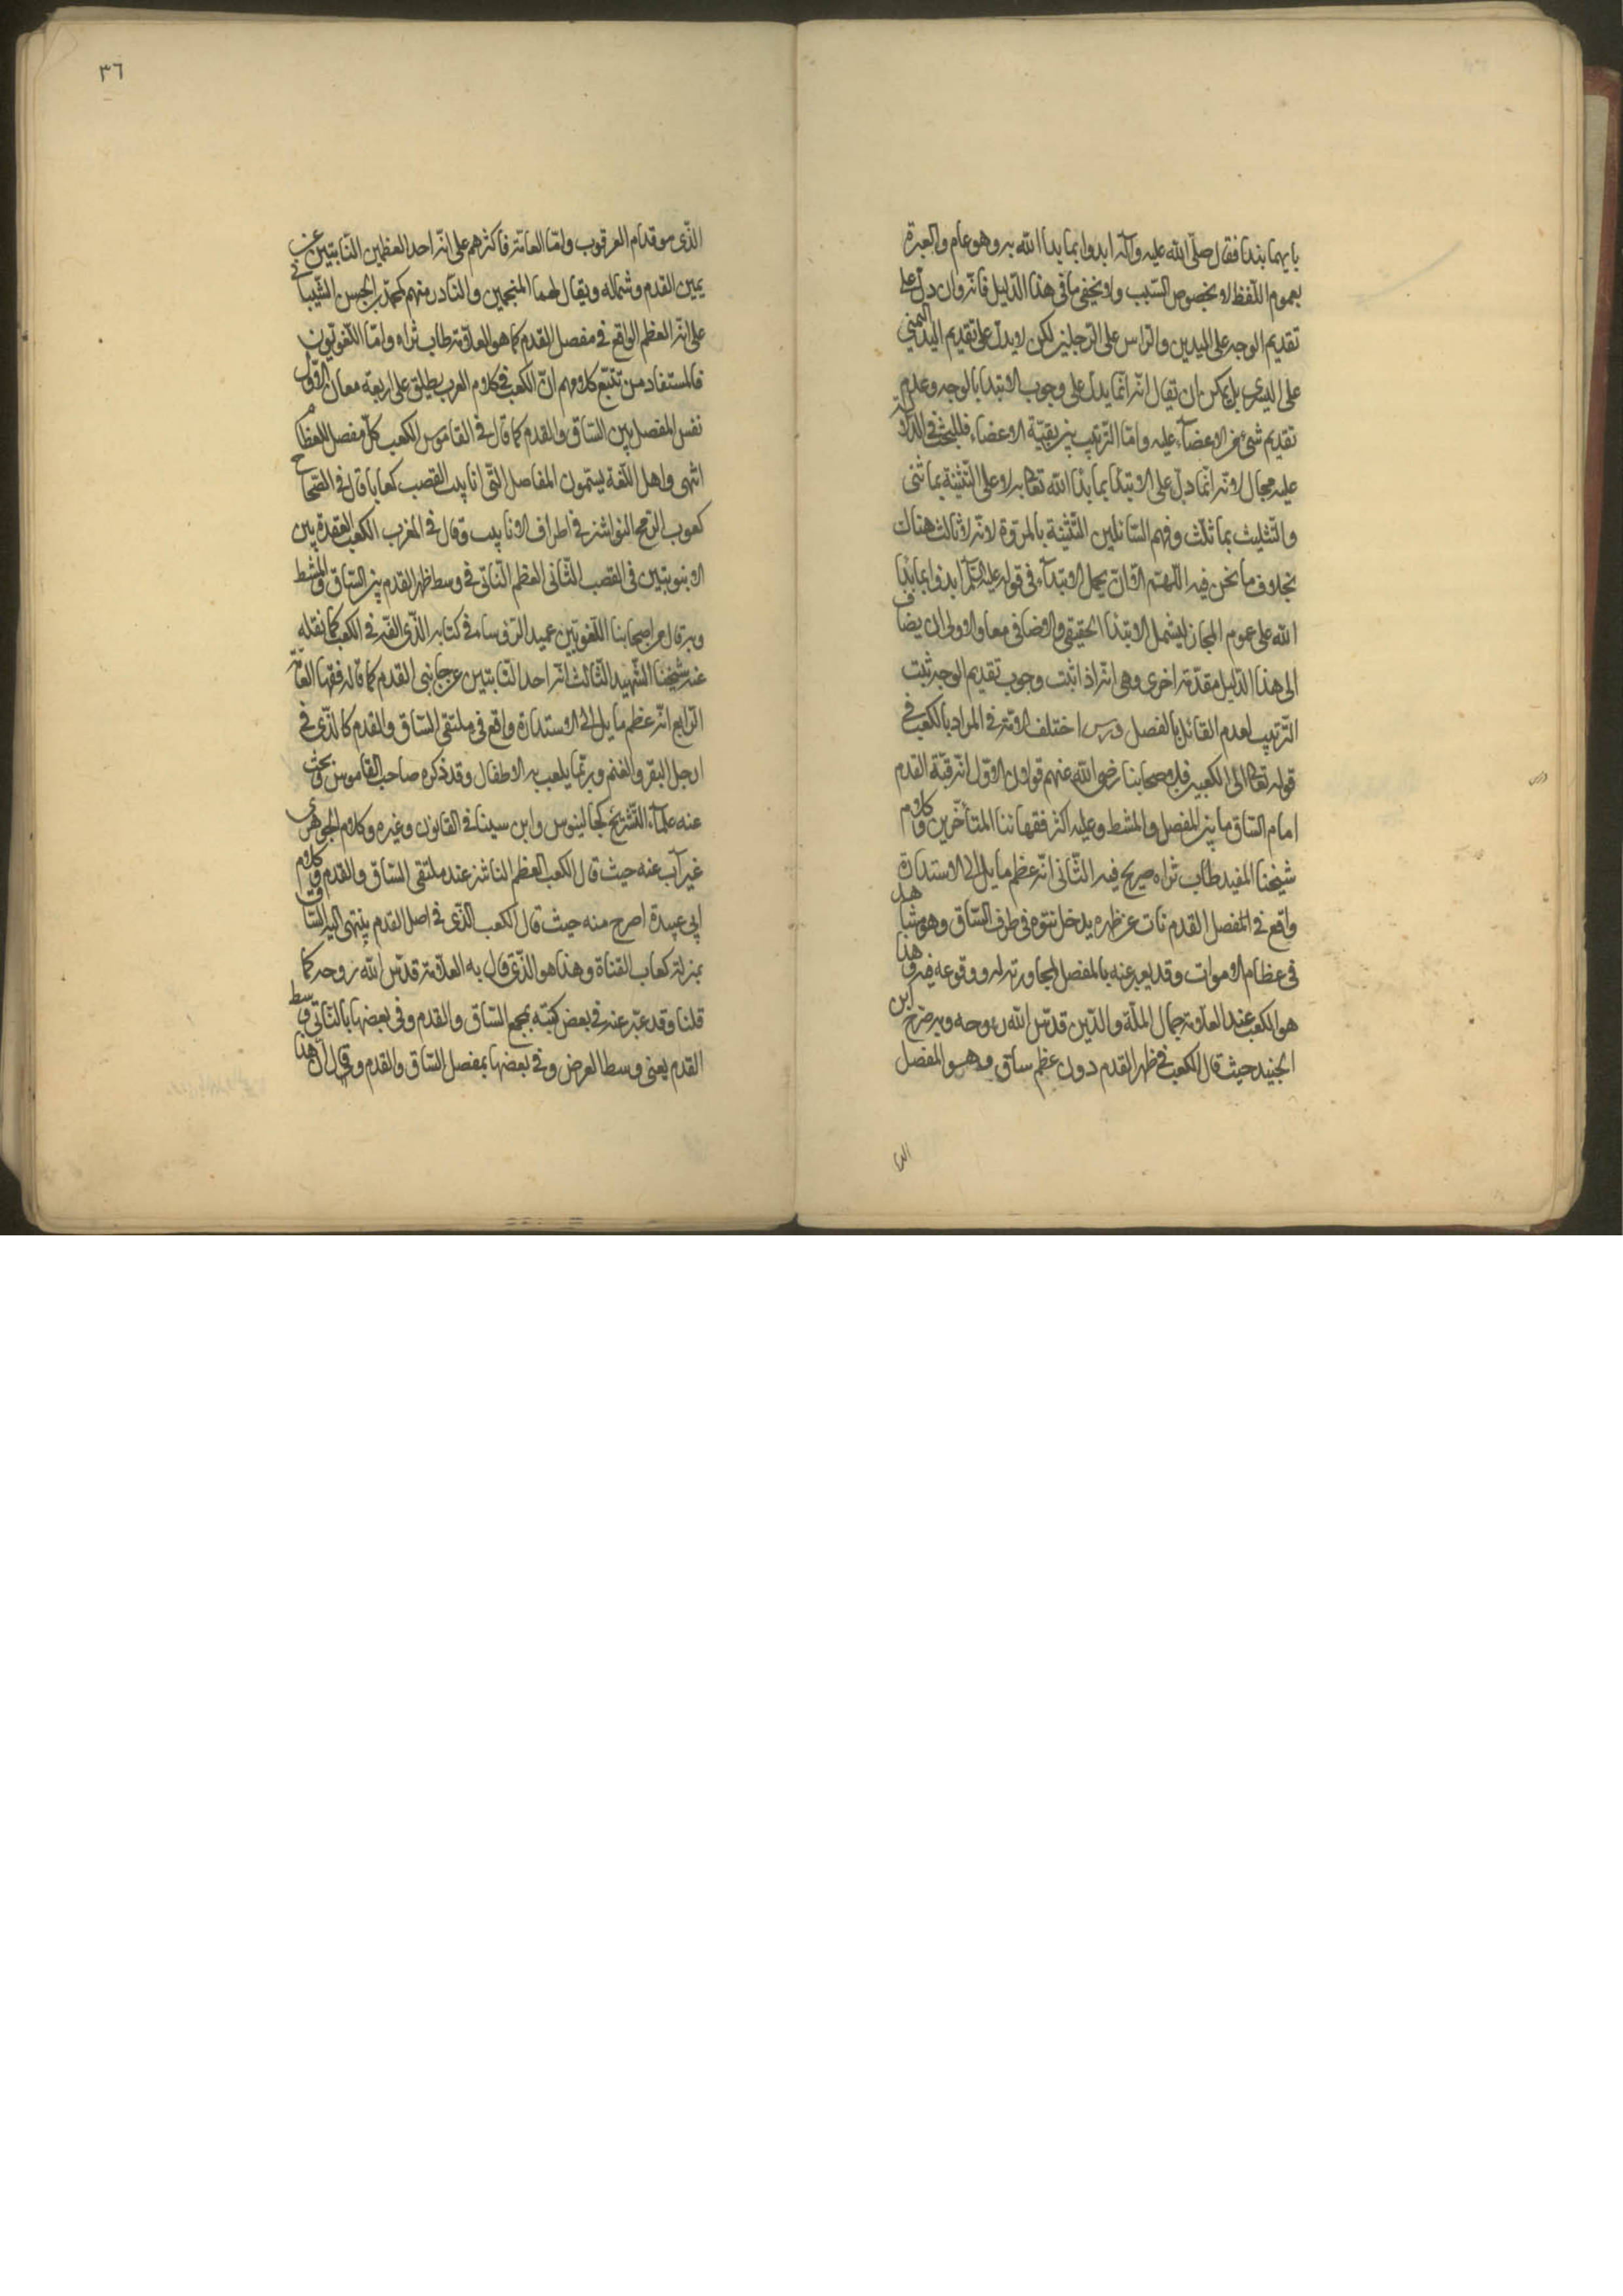 بايهما نبدا فقال صلّى الله عليه وآله ابدوا بما بدا الله به وهو عام والعبرة
بعموم اللّفظ لا بخصوص السّبب ولا يخفى ما فى هذا الدّليل فانّه وان دلّ على
تقديم الوجه على اليدين والرّاس على الرّجلين لكن لا يدلّ على تقديم اليد اليمنى
على اليسرى بل يمكن ان يقال انّه انّما يدلّ على وجوب الابتدا بالوجه وعدم
تقديم شئ من الاعضآء عليه وامّا التّرتيب بين بقيّة الاعضاء فللبحث فى الدّلالة
عليه مجال لانّه انّما دلّ على الابتدا بما بدا الله تعالى به لا على التّثنية بما ثنى
والتّثليث بما ثلّث وفهم السّائلين التّثنية بالمروة لانّه لا ثالث هناك
بخلاف ما نحن فيه اللّهمّ الّا ان يحمل الابتدآء فى قوله عليه السّلم ابدوا بما بدا
الله على عموم المجاز ليشمل الابتدا الحقيقى والاضافى معا والاولى ان يضاف
الى هذا الدّليل مقدّمة اخرى وهى انّه اذا ثبت وجوب تقديم الوجه ثبت
التّرتيب لعدم القائل بالفصل درس اختلف الامّة فى المراد بالكعب فى
قوله تعالى الى الكعبين فلاصحابنا رضى الله عنهم قولان الاوّل انّه قبّة القدم
امام السّاق ما بين المفصل والمشط وعليه اكثر فقهائنا المتأخّرين وكلام
شيخنا المفيد طاب ثراه صريح فيه الثّانى انّه عظم مايل الى الاستدارة
واقع فى المفصل القدم نات عن ظهره يدخل نتوه فى طرف السّاق وهو مشاهد
فى عظام الاموات وقد يعبر عنه بالمفصل لمجاورته له او وقوعه فيه وهذا
هو الكعب عند العلّامة جمال الملّة والدّين قدّس الله روحه وبه صرّح ابن
الجنيد حيث قال الكعب فى ظهر القدم دون عظم ساق وهو المفصل
الذى
درس
٣٦
الذّى هو قدام العرقوب وامّا العامّة فاكثرهم على انّه احد العظمين النّابتين عن
يمين القدم وشماله ويقال لهما المنجمين والنّادر منهم كمحمّد بن الحسن الشّيبانى
على انّه العظم الواقع فى مفصل القدم كما هو العلّامة طاب ثراه وامّا اللّغويّون
فالمستفاد من تتبّع كلامهم انّ الكعب فى كلام العرب يطلق على اربعة معان الاوّل
نفس المفصل بين السّاق والقدم كما قال فى القاموس الكعب كلّ مفصل للعظام
انتهى واهل اللّغة يسمّون المفاصل التّى انابيب القصب كعابا قال فى الصّحاح
كعوب الرّمح النواشز فى اطراف الانابيب وقال فى المغرب الكعب العقدة بين
الانبوبتين فى القصب الثّانى العظم النّاتى فى وسط ظهر القدم بين السّاق والمشط
وبه قال من اصحابنا اللّغويّين عميد الرّؤساء فى كتابه الّذى الّفه فى الكعب كما نقله
عنه شيخنا الشّهيد الثّالث انّه احد النّابتين عن جانبى القدم كما قاله فقها العامّة
الرّابع انّه عظم مايل الى الاستدارة واقع فى ملتقى السّاق والقدم كالذّى فى
ارجل البقر والغنم وربّما يلعب به الاطفال وقد ذكره صاحب القاموس وبحث
عنه علمآء التّشريح كجالينوس وابن سينا فى القانون وغيره وكلام الجوهرى
غير آب عنه حيث قال الكعب العظم النّاشز عند ملتقى السّاق والقدم وكلام
ابى عبيدة اصرح منه حيث قال الكعب الذّى فى اصل القدم ينتهى اليه السّاق
بمنزلة كعاب القناة وهذا هو الذّى قال به العلّامة قدّس الله روحه كما
قلنا وقد عبّر عنه فى بعض كتبه بمجمع السّاق والقدم وفى بعضها بالنّاتى وسط
القدم يعنى وسط العرض وفى بعضها بمفصل السّاق والقدم وقال انّ هذا